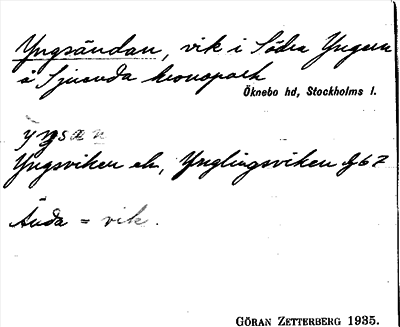 Yngsändan, vik i Södra Yngern
å Sjunda kronopark
Öknebo hd, Stockholms l.
Yngsviken el., Ynglingsviken
Ända = vik.
GÖRAN ZETTERBERG 1935.